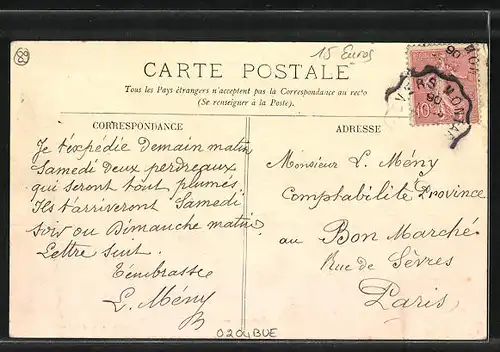 15 Euros
CARTE POSTALE
Tous les Pays étrangers n'acceptent pas la Correspondance au recto
(Se renseigner à la Poste).
CORRESPONDANCE
Je t'expédie demain matin
Samedi deux perdreaux
qui seront tout plumés
Ils t'arriveront Samedi
soir ou Dimanche matin.
Lettre suit.
T'embrasse
L. Mény
ADRESSE
Monsieur L. Mény
Comptabilité Province
au Bon Marché
Rue de Sèvres
Paris